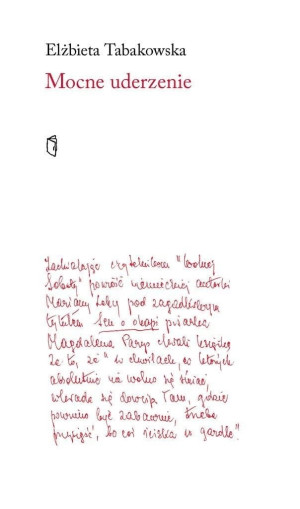 Elżbieta Tabakowska
Mocne uderzenie
Zachwalając czytelnikom "Wolnej
Soboty" powieść niemieckiej autorki
Mariany Leky pod zagadkowym
tytułem Sen o okapi pisarka
Magdalena Parys chwali książkę
za to, że " w chwilach, w których
absolutnie nie wolno się śmiać,
wkrada się dowcip. Tam, gdzie
powinno być zabawnie, trzeba
przysiąść, bo coś ściska w gardle".